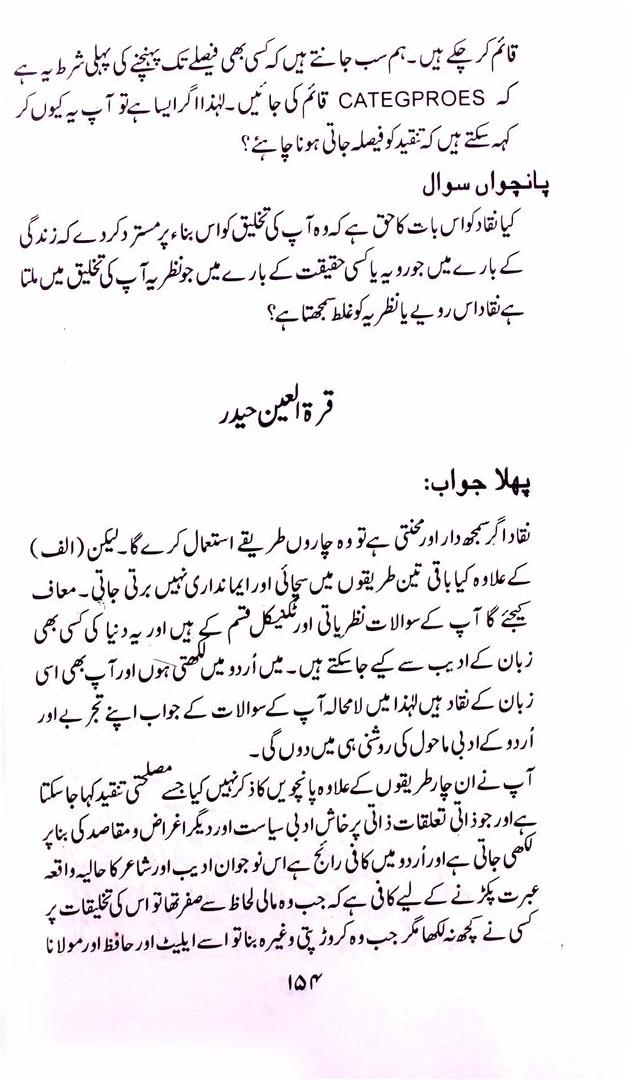 قائم کر چکے ہیں۔ ہم سب جانتے ہیں کہ کسی بھی فیصلے تک پہنچنے کی پہلی شرط یہ ہے
کہ CATEGPROES قائم کی جائیں۔ لہٰذا اگر ایسا ہے تو آپ یہ کیوں کر
کہہ سکتے ہیں کہ تنقید کو فیصلہ جاتی ہونا چاہئے؟
پانچواں سوال
کیا نقاد کو اس بات کا حق ہے کہ وہ آپ کی تخلیق کو اس بناء پر مسترد کر دے کہ زندگی
کے بارے میں جو رویہ یا کسی حقیقت کے بارے میں جو نظریہ آپ کی تخلیق میں ملتا
ہے نقاد اس رویے یا نظریہ کو غلط سمجھتا ہے؟
قرۃ العین حیدر
پہلا جواب:
نقاد اگر سمجھ دار اور محنتی ہے تو وہ چاروں طریقے استعمال کرے گا۔ لیکن (الف)
کے علاوہ کیا باقی تین طریقوں میں سچائی اور ایمانداری نہیں برتی جاتی۔ معاف
کیجئے گا آپ کے سوالات نظریاتی اور ٹکنیکل قسم کے ہیں اور یہ دنیا کی کسی بھی
زبان کے ادیب سے کیے جا سکتے ہیں۔ میں اُردو میں لکھتی ہوں اور آپ بھی اسی
زبان کے نقاد ہیں لہٰذا میں لامحالہ آپ کے سوالات کے جواب اپنے تجربے اور
اُردو کے ادبی ماحول کی روشنی ہی میں دوں گی۔
آپ نے ان چار طریقوں کے علاوہ پانچویں کا ذکر نہیں کیا جسے مصلحتی تنقید کہا جا سکتا
ہے اور جو ذاتی تعلقات ذاتی پرخاش ادبی سیاست اور دیگر اغراض و مقاصد کی بنا پر
لکھی جاتی ہے اور اُردو میں کافی رائج ہے اس نوجوان ادیب اور شاعر کا حالیہ واقعہ
عبرت پکڑنے کے لیے کافی ہے کہ جب وہ مالی لحاظ سے صفر تھا تو اس کی تخلیقات پر
کسی نے کچھ نہ لکھا مگر جب وہ کروڑ پتی وغیرہ بنا تو اسے ایلیٹ اور حافظ اور مولانا
۱۵۴